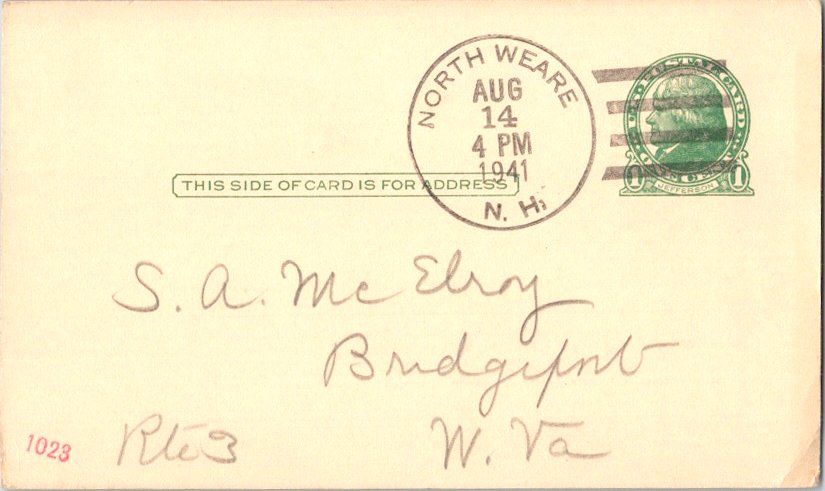 NORTH WEARE
AUG
14
4 PM
1941
N. H.
POSTAL CARD
1 JEFFERSON 1
THIS SIDE OF CARD IS FOR ADDRESS
S. A. McElroy
Bridgeport
Rte 3 W. Va
1023